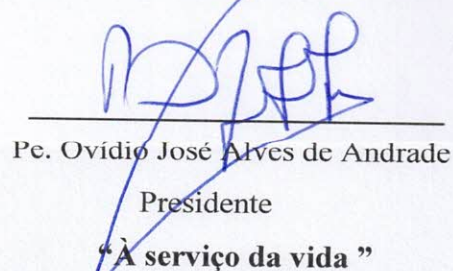 Pe. Ovídio José Alves de Andrade
Presidente
“À serviço da vida ”